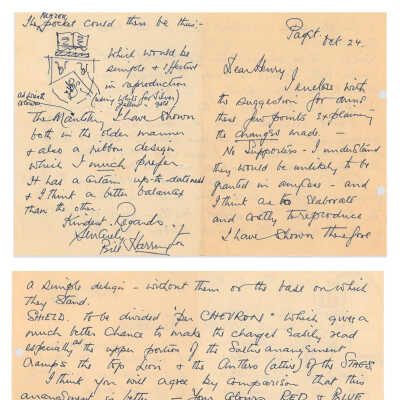 Oct 24.
Dear Henry
I enclose with
the suggestion for arms
these few points explaining
the changes made. —
No Supporters - I understand
they would be unlikely to be
granted in any case - and
I think are to Elaborate
and costly to reproduce
I have shown therefore
a simple design - without them or the base on which
they stand.
SHIELD. to be divided "per CHEVRON" which gives a
much better Chance to make the charges Easily read
especially as the upper portion of the arrangement
Cramps the top Lion & the Antlers of the STAGS.
I think you will agree by comparison that this
arrangement is better - Your Colours RED & BLUE
The pocket could then be thus:-
which would be
simple & effective
in reproduction
(using white for silver
yellow & gold
The Mantling I have shown
both in the older manner
& also a ribbon design
which I much prefer
It has a certain up-to-dateness
& I think a better balance
than the other
Kindest Regards.
Sincerely
Bill Harrington